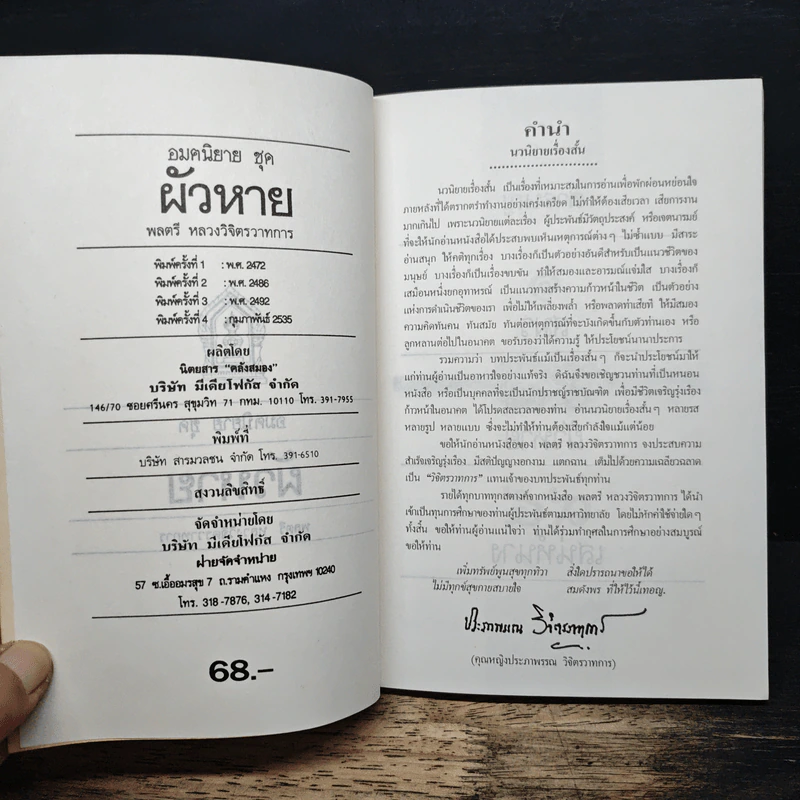 อมตนิยาย ชุด
ผัวหาย
พลตรี หลวงวิจิตรวาทการ
พิมพ์ครั้งที่ 1 : พ.ศ. 2472
พิมพ์ครั้งที่ 2 : พ.ศ. 2486
พิมพ์ครั้งที่ 3 : พ.ศ. 2492
พิมพ์ครั้งที่ 4 : กุมภาพันธ์ 2535
ผลิตโดย
นิตยสาร "คลังสมอง"
บริษัท มีเดียโฟกัส จำกัด
146/70 ซอยศรีนคร สุขุมวิท 71 กทม. 10110 โทร. 391-7955
พิมพ์ที่
บริษัท สารมวลชน จำกัด โทร. 391-6510
สงวนลิขสิทธิ์
จัดจำหน่ายโดย
บริษัท มีเดียโฟกัส จำกัด
ฝ่ายจัดจำหน่าย
57 ซ.เอื้ออมรสุข 7 ถ.รามคำแหง กรุงเทพฯ 10240
โทร. 318-7876, 314-7182
68.-
คำนำ
นวนิยายเรื่องสั้น
นวนิยายเรื่องสั้น เป็นเรื่องที่เหมาะสมในการอ่านเพื่อพักผ่อนหย่อนใจ
ภายหลังที่ได้ตรากตรำทำงานอย่างเคร่งเครียด ไม่ทำให้ต้องเสียเวลา เสียการงาน
มากเกินไป เพราะนวนิยายแต่ละเรื่อง ผู้ประพันธ์มีวัตถุประสงค์ หรือเจตนารมย์
ที่จะให้นักอ่านหนังสือได้ประสบพบเห็นเหตุการณ์ต่างๆ ไม่ซ้ำแบบ มีสาระ
อ่านสนุก ให้คติทุกเรื่อง บางเรื่องก็เป็นตัวอย่างอันดีสำหรับเป็นแนวชีวิตของ
มนุษย์ บางเรื่องก็เป็นเรื่องขบขัน ทำให้สมองและอารมณ์แจ่มใส บางเรื่องก็
เสมือนหนึ่งยกอุทาหรณ์ เป็นแนวทางสร้างความก้าวหน้าในชีวิต เป็นตัวอย่าง
แห่งการดำเนินชีวิตของเรา เพื่อไม่ให้เพลี่ยงพล้ำ หรือพลาดท่าเสียที ให้มีสมอง
ความคิดทันคน ทันสมัย ทันต่อเหตุการณ์ที่จะบังเกิดขึ้นกับตัวท่านเอง หรือ
ลูกหลานต่อไปในอนาคต ขอรับรองว่าได้ความรู้ ให้ประโยชน์นานาประการ
รวมความว่า บทประพันธ์แม้เป็นเรื่องสั้นๆ ก็จะนำประโยชน์มาให้
แก่ท่านผู้อ่านเป็นอาหารใจอย่างแท้จริง ดิฉันจึงขอเชิญชวนท่านที่เป็นหนอน
หนังสือ หรือเป็นบุคคลที่จะเป็นนักปราชญ์ราชบัณฑิต เพื่อมีชีวิตเจริญรุ่งเรือง
ก้าวหน้าในอนาคต ได้โปรดสละเวลาของท่าน อ่านนวนิยายเรื่องสั้นๆ หลายรส
หลายรูป หลายแบบ ซึ่งจะไม่ทำให้ท่านต้องเสียกำลังใจแม้แต่น้อย
ขอให้นักอ่านหนังสือของ พลตรี หลวงวิจิตรวาทการ จงประสบความ
สำเร็จเจริญรุ่งเรือง มีสติปัญญางอกงาม แตกฉาน เต็มไปด้วยความเฉลียวฉลาด
เป็น "วิจิตรวาทการ" แทนเจ้าของบทประพันธ์ทุกท่าน
รายได้ทุกบาททุกสตางค์จากหนังสือ พลตรี หลวงวิจิตรวาทการ ได้นำ
เข้าเป็นทุนการศึกษาของท่านผู้ประพันธ์ตามมหาวิทยาลัย โดยไม่หักค่าใช้จ่ายใดๆ
ทั้งสิ้น ขอให้ท่านผู้อ่านแน่ใจว่า ท่านได้ร่วมทำกุศลในการศึกษาอย่างสมบูรณ์
ขอให้ท่าน
เพิ่มทรัพย์พูนสุขทุกทิวา สิ่งใดปรารถนาขอให้ได้
ไม่มีทุกข์สุขกายสบายใจ สมดังพร ที่ให้ไว้นี้เทอญ.
ประภาพรรณ วิจิตรวาทการ
(คุณหญิงประภาพรรณ วิจิตรวาทการ)